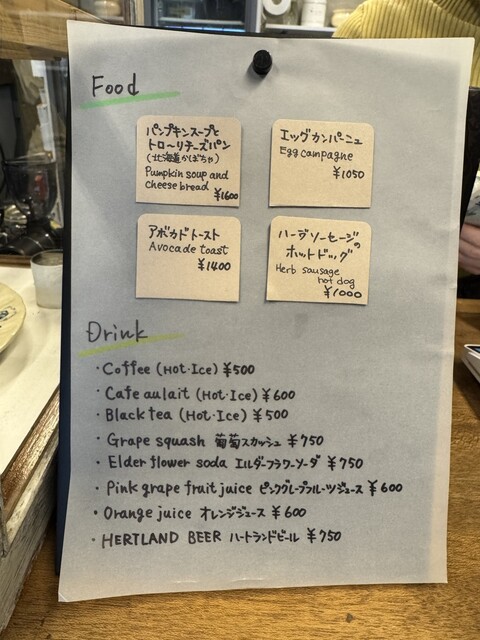 Food
パンプキンスープと
トロ〜リチーズパン
(北海道かぼちゃ)
Pumpkin soup and
cheese bread ¥1600
エッグカンパーニュ
Egg campagne
¥1050
アボカドトースト
Avocade toast
¥1400
ハーブソーセージの
ホットドッグ
Herb sausage
hot dog
¥1000
Drink
・Coffee (HOT・Ice) ¥500
・Cafe au lait (HOT・Ice) ¥600
・Black tea (HOT・Ice) ¥500
・Grape squash 葡萄スカッシュ ¥750
・Elder flower soda エルダーフラワーソーダ ¥750
・Pink grape fruit juice ピンクグレープフルーツジュース ¥600
・Orange juice オレンジジュース ¥600
・HERTLAND BEER ハートランドビール ¥750